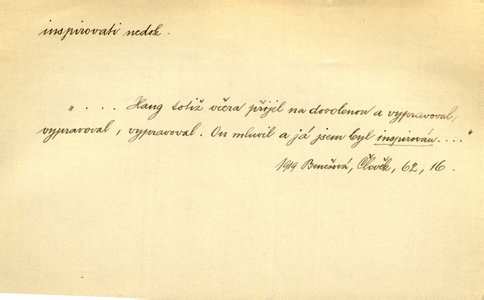 inspirovati nedok.
„ . . . . Hang totiž včera přijel na dovolenou a vypravoval,
vypravoval, vypravoval. On mluvil a já jsem byl inspirován . . . . "
1919 Benešová, Člověk, 62, 16.